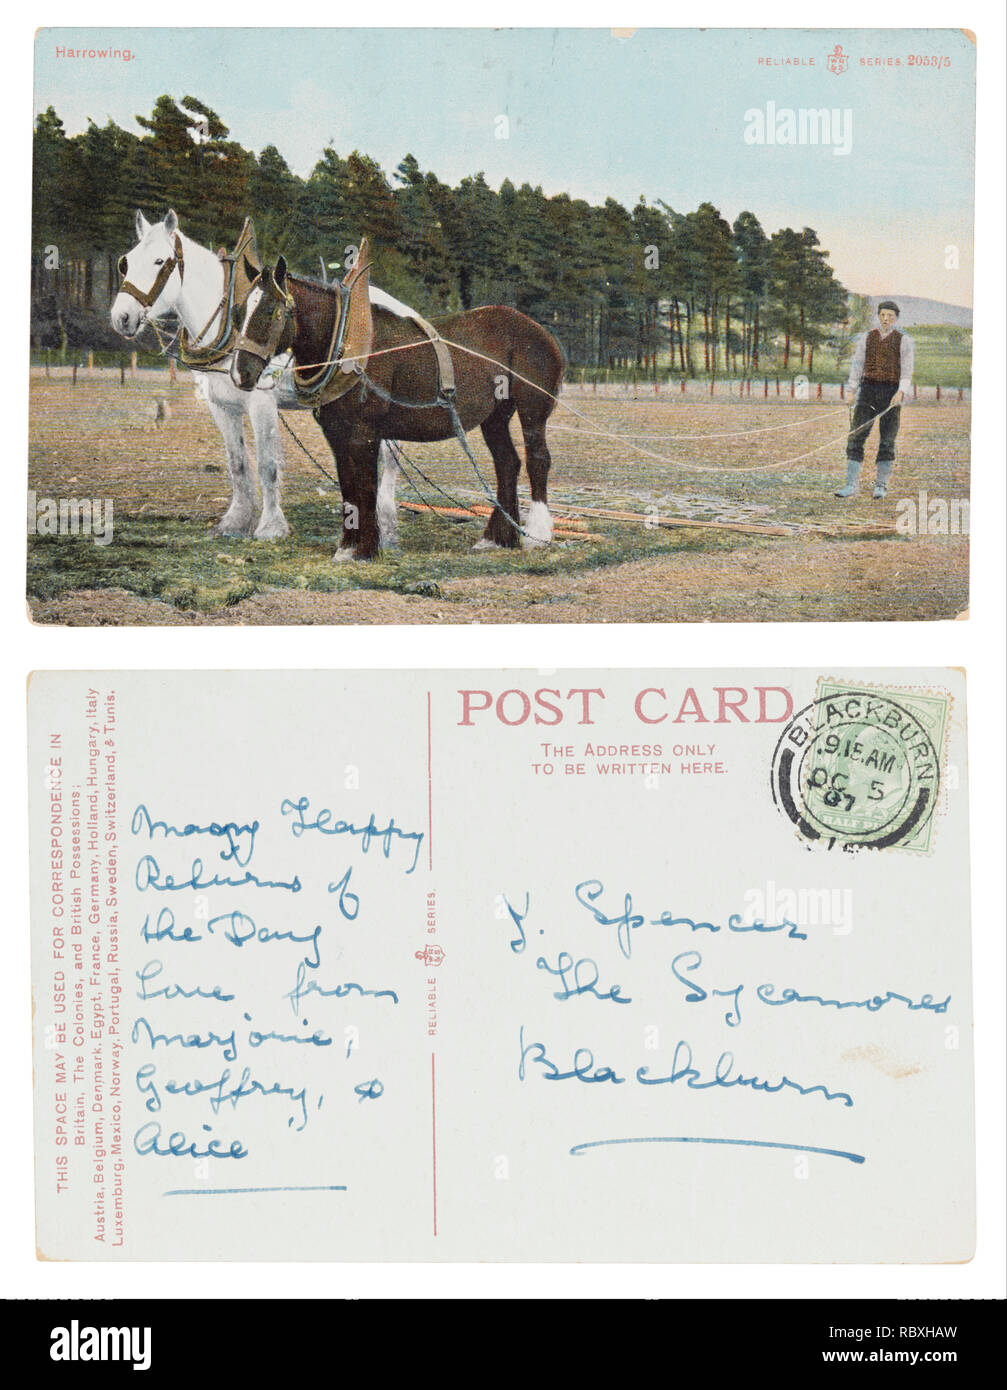 Harrowing.
RELIABLE WR&S SERIES. 2053/5
THIS SPACE MAY BE USED FOR CORRESPONDENCE IN
Britain, The Colonies, and British Possessions;
Austria, Belgium, Denmark, Egypt, France, Germany, Holland, Hungary, Italy
Luxemburg, Mexico, Norway, Portugal, Russia, Sweden, Switzerland, & Tunis.
Many Happy
Returns of
the Day
Love from
Marjorie,
Geoffrey, &
Alice
RELIABLE WR&S SERIES.
POST CARD
THE ADDRESS ONLY
TO BE WRITTEN HERE.
BLACKBURN
9.15 AM
OC 5
07
HALF
Y. Spencer
The Sycamores
Blackburn
alamy
Image ID: RBXHAW
www.alamy.com